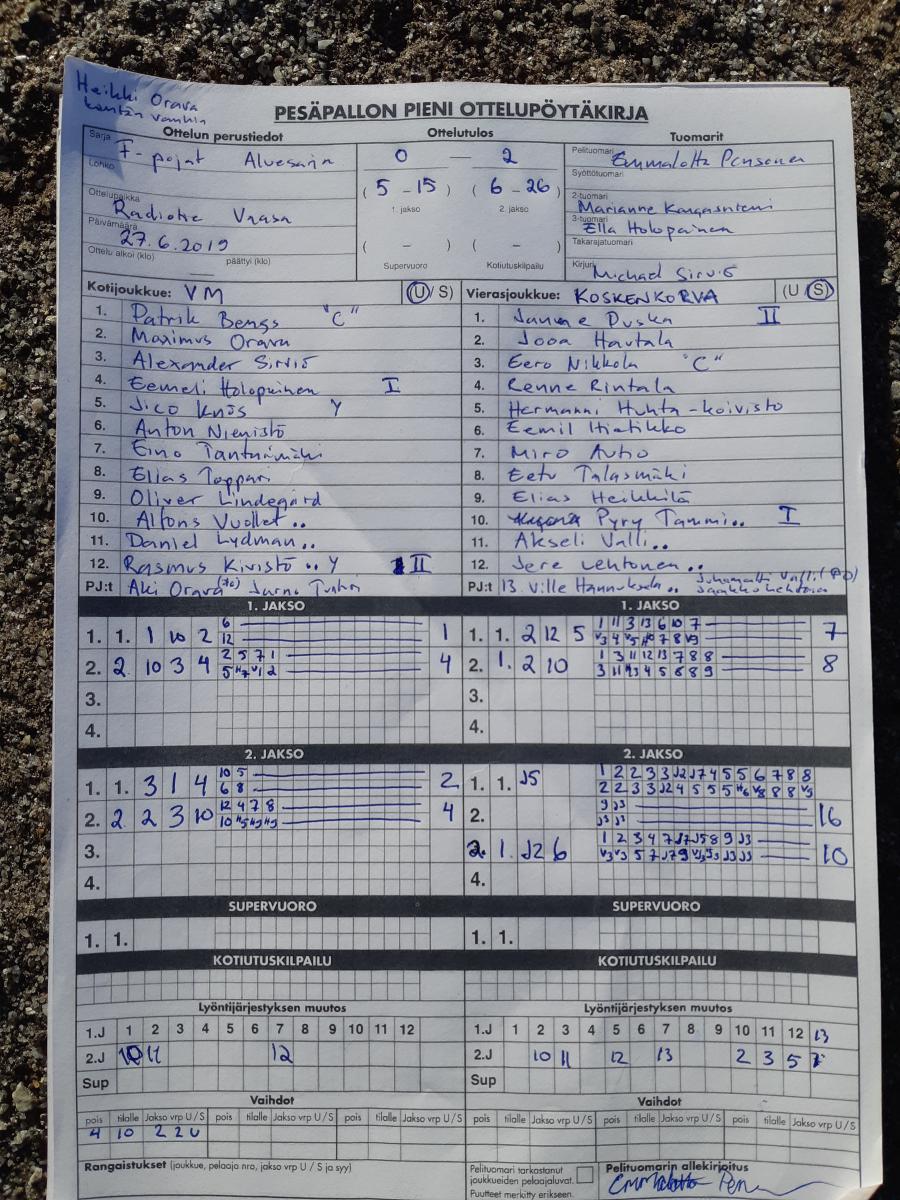 Heikki Orava
kentän vanhin
PESÄPALLON PIENI OTTELUPÖYTÄKIRJA
Ottelun perustiedot
Sarja F-pojat Aluesarja
Lohko
Ottelupaikka Radiotie Vaasa
Päivämäärä 27.6.2019
Ottelu alkoi (klo) päättyi (klo)
Ottelutulos
0 — 2
(5 - 15) (6 - 26)
1. jakso 2. jakso
( - ) ( - )
Supervuoro Kotiutuskilpailu
Tuomarit
Pelituomari Emmalotta
Syöttötuomari
2-tuomari Marianne Kangasniemi
3-tuomari Ella Holopainen
Takarajatuomari
Kirjuri Michael Sirviö
Kotijoukkue: VM (U/S)
1. Patrik Bengs "C"
2. Maximus Orava
3. Alexander Sirviö
4. Eemeli Holopainen I
5. Jico Knös Y
6. Anton Niemistö
7. Eino Tantnimäki
8. Elias Toppari
9. Oliver Lindegård
10. Alfons Vuollet..
11. Daniel Lydman..
12. Rasmus Kivistö .. Y II
PJ:t Aki Orava Jarno
Vierasjoukkue: KOSKENKORVA (U/S)
1. Duska II
2. Jooa Hautala
3. Eero Nikkola "C"
4. Renne Rintala
5. Hermanni Huhta-koivisto
6. Eemil Itiatikko
7. Miro Autio
8. Eetu Talasmäki
9. Elias Heikkilä
10. Pyry Tammi.. I
11. Akseli Valli..
12. Jere Lehtonen ..
PJ:t 13. Ville Hannuksela .. Juhamatti Valli (PJ)
Jaakko Lehtonen
1. JAKSO
1. 1. 1 10 2 6 1
12
2. 2 10 3 4 2 5 7 1 4
5 H7 V1 2
3.
4.
1. JAKSO
1. 1. 2 12 5 1 11 3 13 6 10 7 7
V3 4 V5 H0 7 8 V9
2. 1. 2 10 1 3 11 12 13 7 8 8 8
3 11 H3 4 5 6 8 9
3.
4.
2. JAKSO
1. 1. 3 1 4 10 5 2
6 8
2. 2 2 3 10 12 4 7 8 4
10 H5 H9 H9
3.
4.
2. JAKSO
1. 1. J5 1 2 2 3 3 J2 J7 4 5 5 6 7 8 8
2 2 3 3 J2 4 5 5 5 H6 V8 8 8 V9
2. 9 J3 16
J3 J3
2. 1. J2 6 1 2 3 4 7 J7 J5 8 9 J3 10
V3 V3 5 7 J7 9
4.
SUPERVUORO
1. 1.
SUPERVUORO
1. 1.
KOTIUTUSKILPAILU
KOTIUTUSKILPAILU
Lyöntijärjestyksen muutos
1.J 1 2 3 4 5 6 7 8 9 10 11 12
2.J 10 11 12
Sup
Lyöntijärjestyksen muutos
1.J 1 2 3 4 5 6 7 8 9 10 11 12 13
2.J 10 11 12 13 2 3 5 7
Sup
Vaihdot
pois tilalle Jakso vrp U/S pois tilalle Jakso vrp U/S pois tilalle Jakso vrp U/S
4 10 2 2 U
Vaihdot
pois tilalle Jakso vrp U/S pois tilalle Jakso vrp U/S pois tilalle Jakso vrp U/S
Rangaistukset (joukkue, pelaaja nro, jakso vrp U / S ja syy)
Pelituomari tarkastanut
joukkueiden pelaajaluvat.
Puutteet merkitty erikseen.
Pelituomarin allekirjoitus
Emmalotta